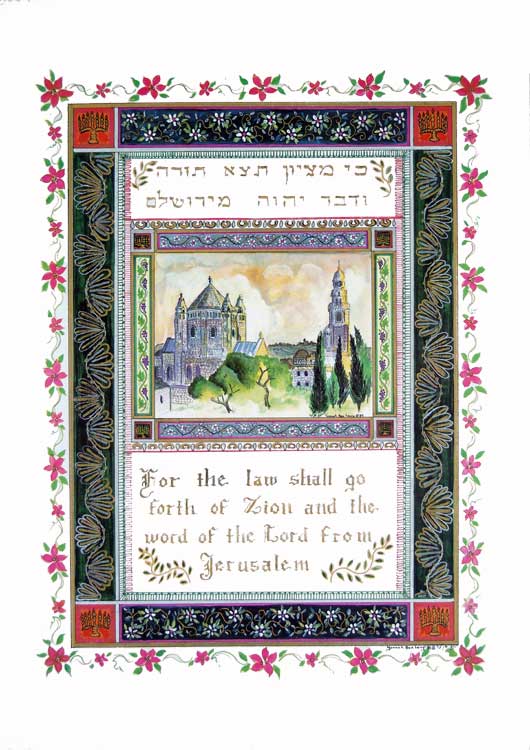 כי מציון תצא תורה
ודבר יהוה מירושלם
For the law shall go
forth of Zion and the
word of the Lord from
Jerusalem